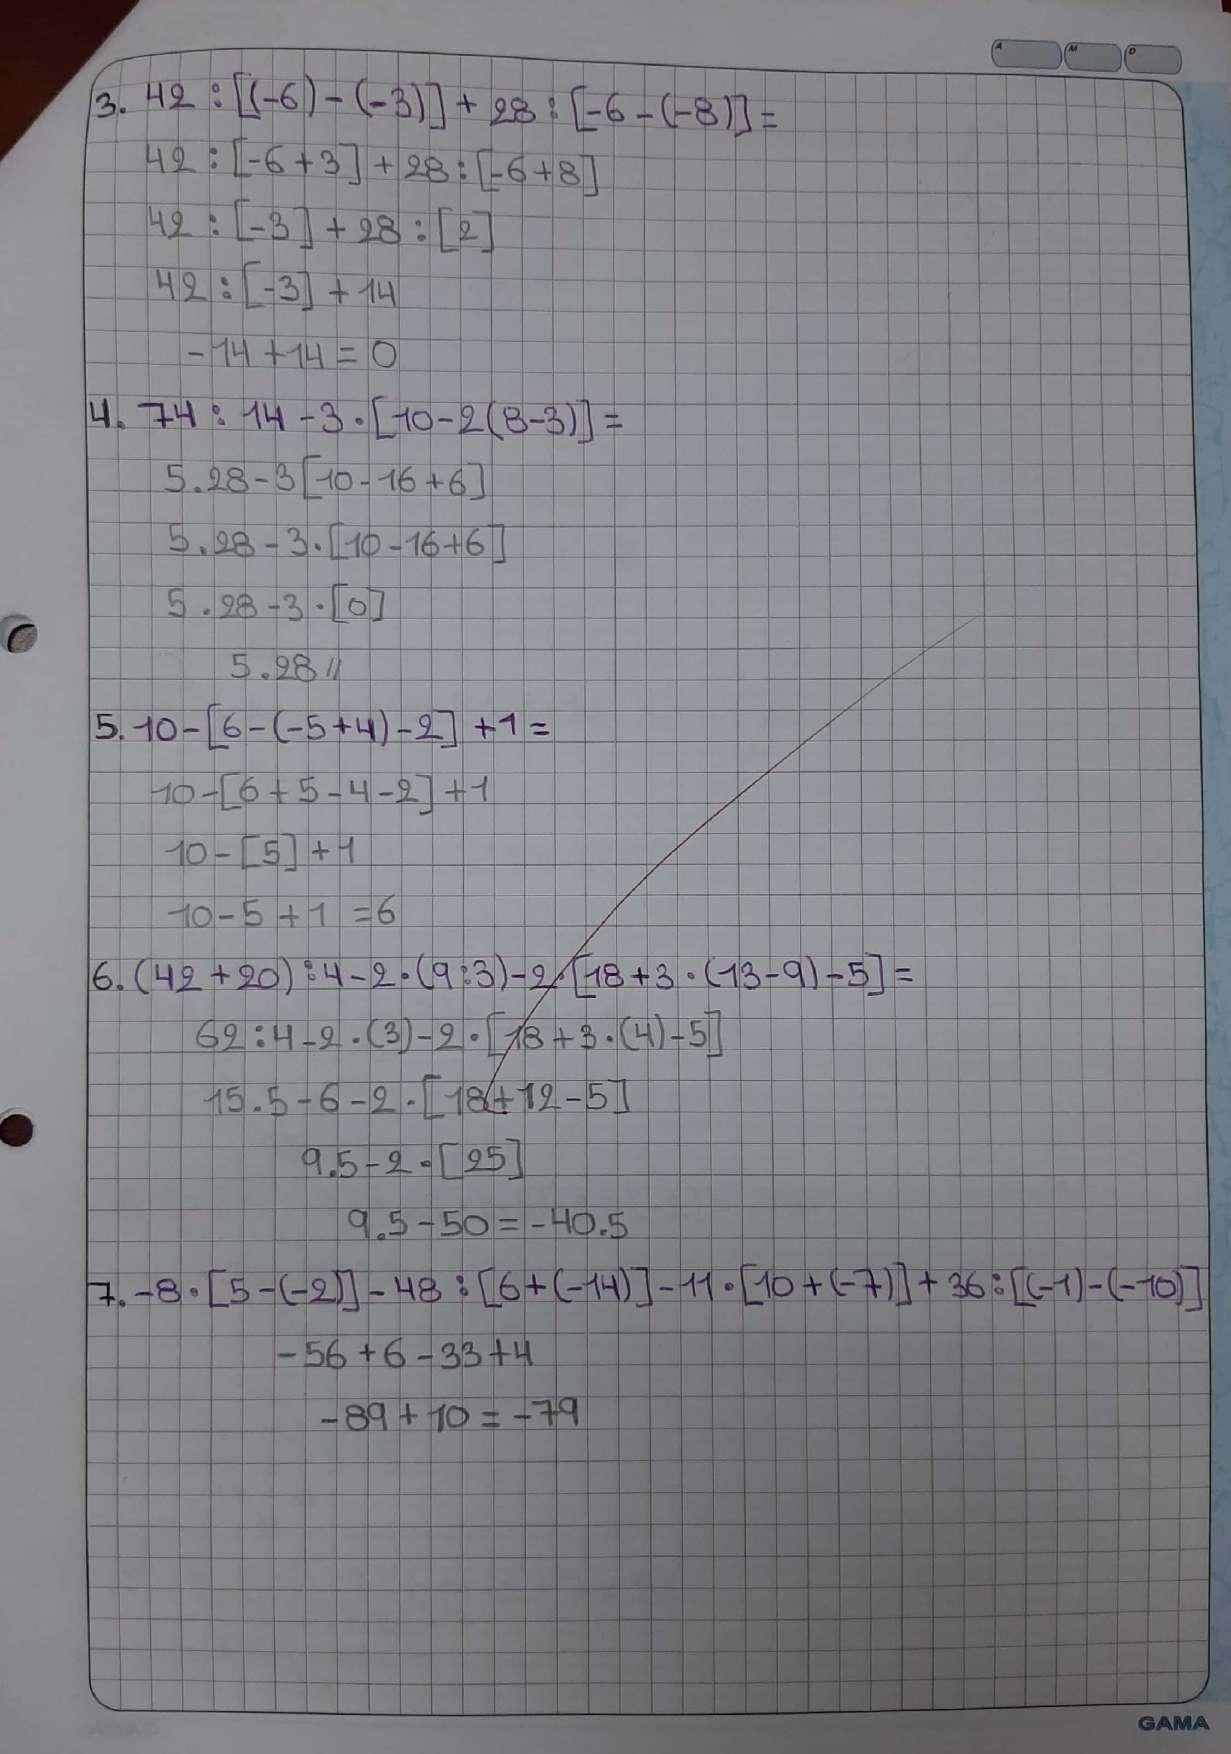 A M D
3. 42 : [(-6) - (-3)] + 28 : [-6 - (-8)] =
42 : [-6 + 3] + 28 : [-6+8]
42 : [-3] + 28 : [2]
42 : [-3] + 14
-14 + 14 = 0
4. 74 : 14 - 3 · [10 - 2(8-3)] =
5.28 - 3 [10 - 16 + 6]
5.28 - 3 · [10 - 16 + 6]
5.28 - 3 · [0]
5.28 //
5. 10 - [6 - (-5+4) - 2] + 1 =
10 - [6 + 5 - 4 - 2] + 1
10 - [5] + 1
10 - 5 + 1 = 6
6. (42 + 20) : 4 - 2 · (9 : 3) - 2 · [18 + 3 · (13 - 9) - 5] =
62 : 4 - 2 · (3) - 2 · [18 + 3 · (4) - 5]
15.5 - 6 - 2 · [18 + 12 - 5]
9.5 - 2 · [25]
9.5 - 50 = -40.5
7. -8 · [5 - (-2)] - 48 : [6 + (-14)] - 11 · [10 + (-7)] + 36 : [(-1) - (-10)]
-56 + 6 - 33 + 4
-89 + 10 = -79
GAMA